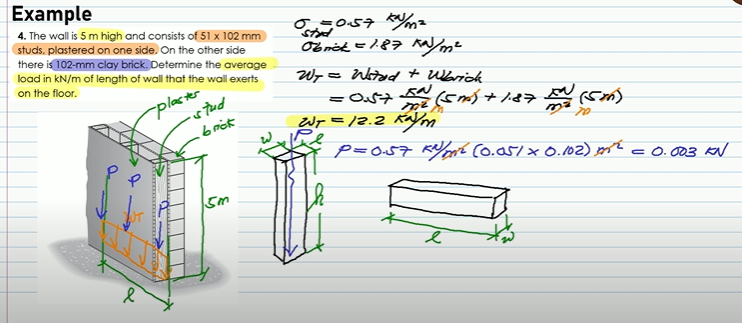 Example
4. The wall is 5 m high and consists of 51 x 102 mm
studs, plastered on one side. On the other side
there is 102-mm clay brick. Determine the average
load in kN/m of length of wall that the wall exerts
on the floor.
σstud = 0.57 kN/m²
σbrick = 1.87 kN/m²
WT = Wstud + Wbrick
= 0.57 kN/m² (5m) + 1.87 kN/m² (5m)
m m
WT = 12.2 kN/m
P = 0.57 kN/m² (0.051 x 0.102) m² = 0.003 kN
plaster
stud
brick
P
P
P
WT
5m
l
w
P
l
h
l
w